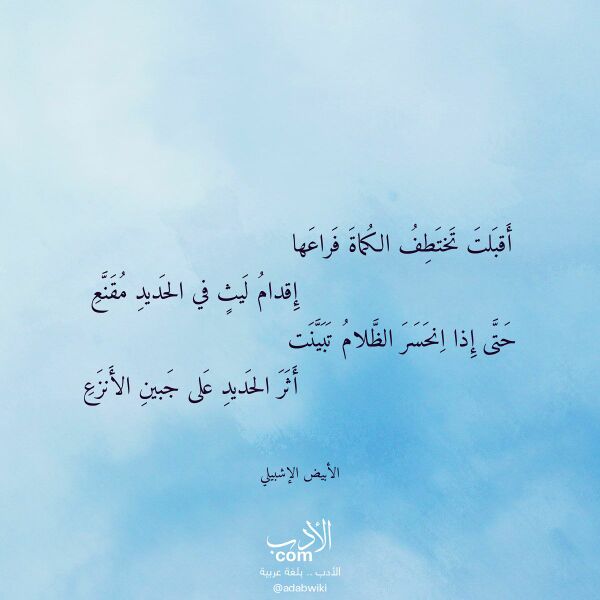 أَقبَلتَ تَختَطِفُ الكُماةَ فَراعَها
إِقدامُ لَيثٍ في الحَديدِ مُقَنَّعِ
حَتَّى إِذا اِنحَسَرَ الظَّلامُ تَبَيَّنَت
أَثَرَ الحَديدِ عَلى جَبينِ الأَنزَعِ
الأبيض الإشبيلي
الأدب
com
الأدب .. بلغة عربية
@adabwiki